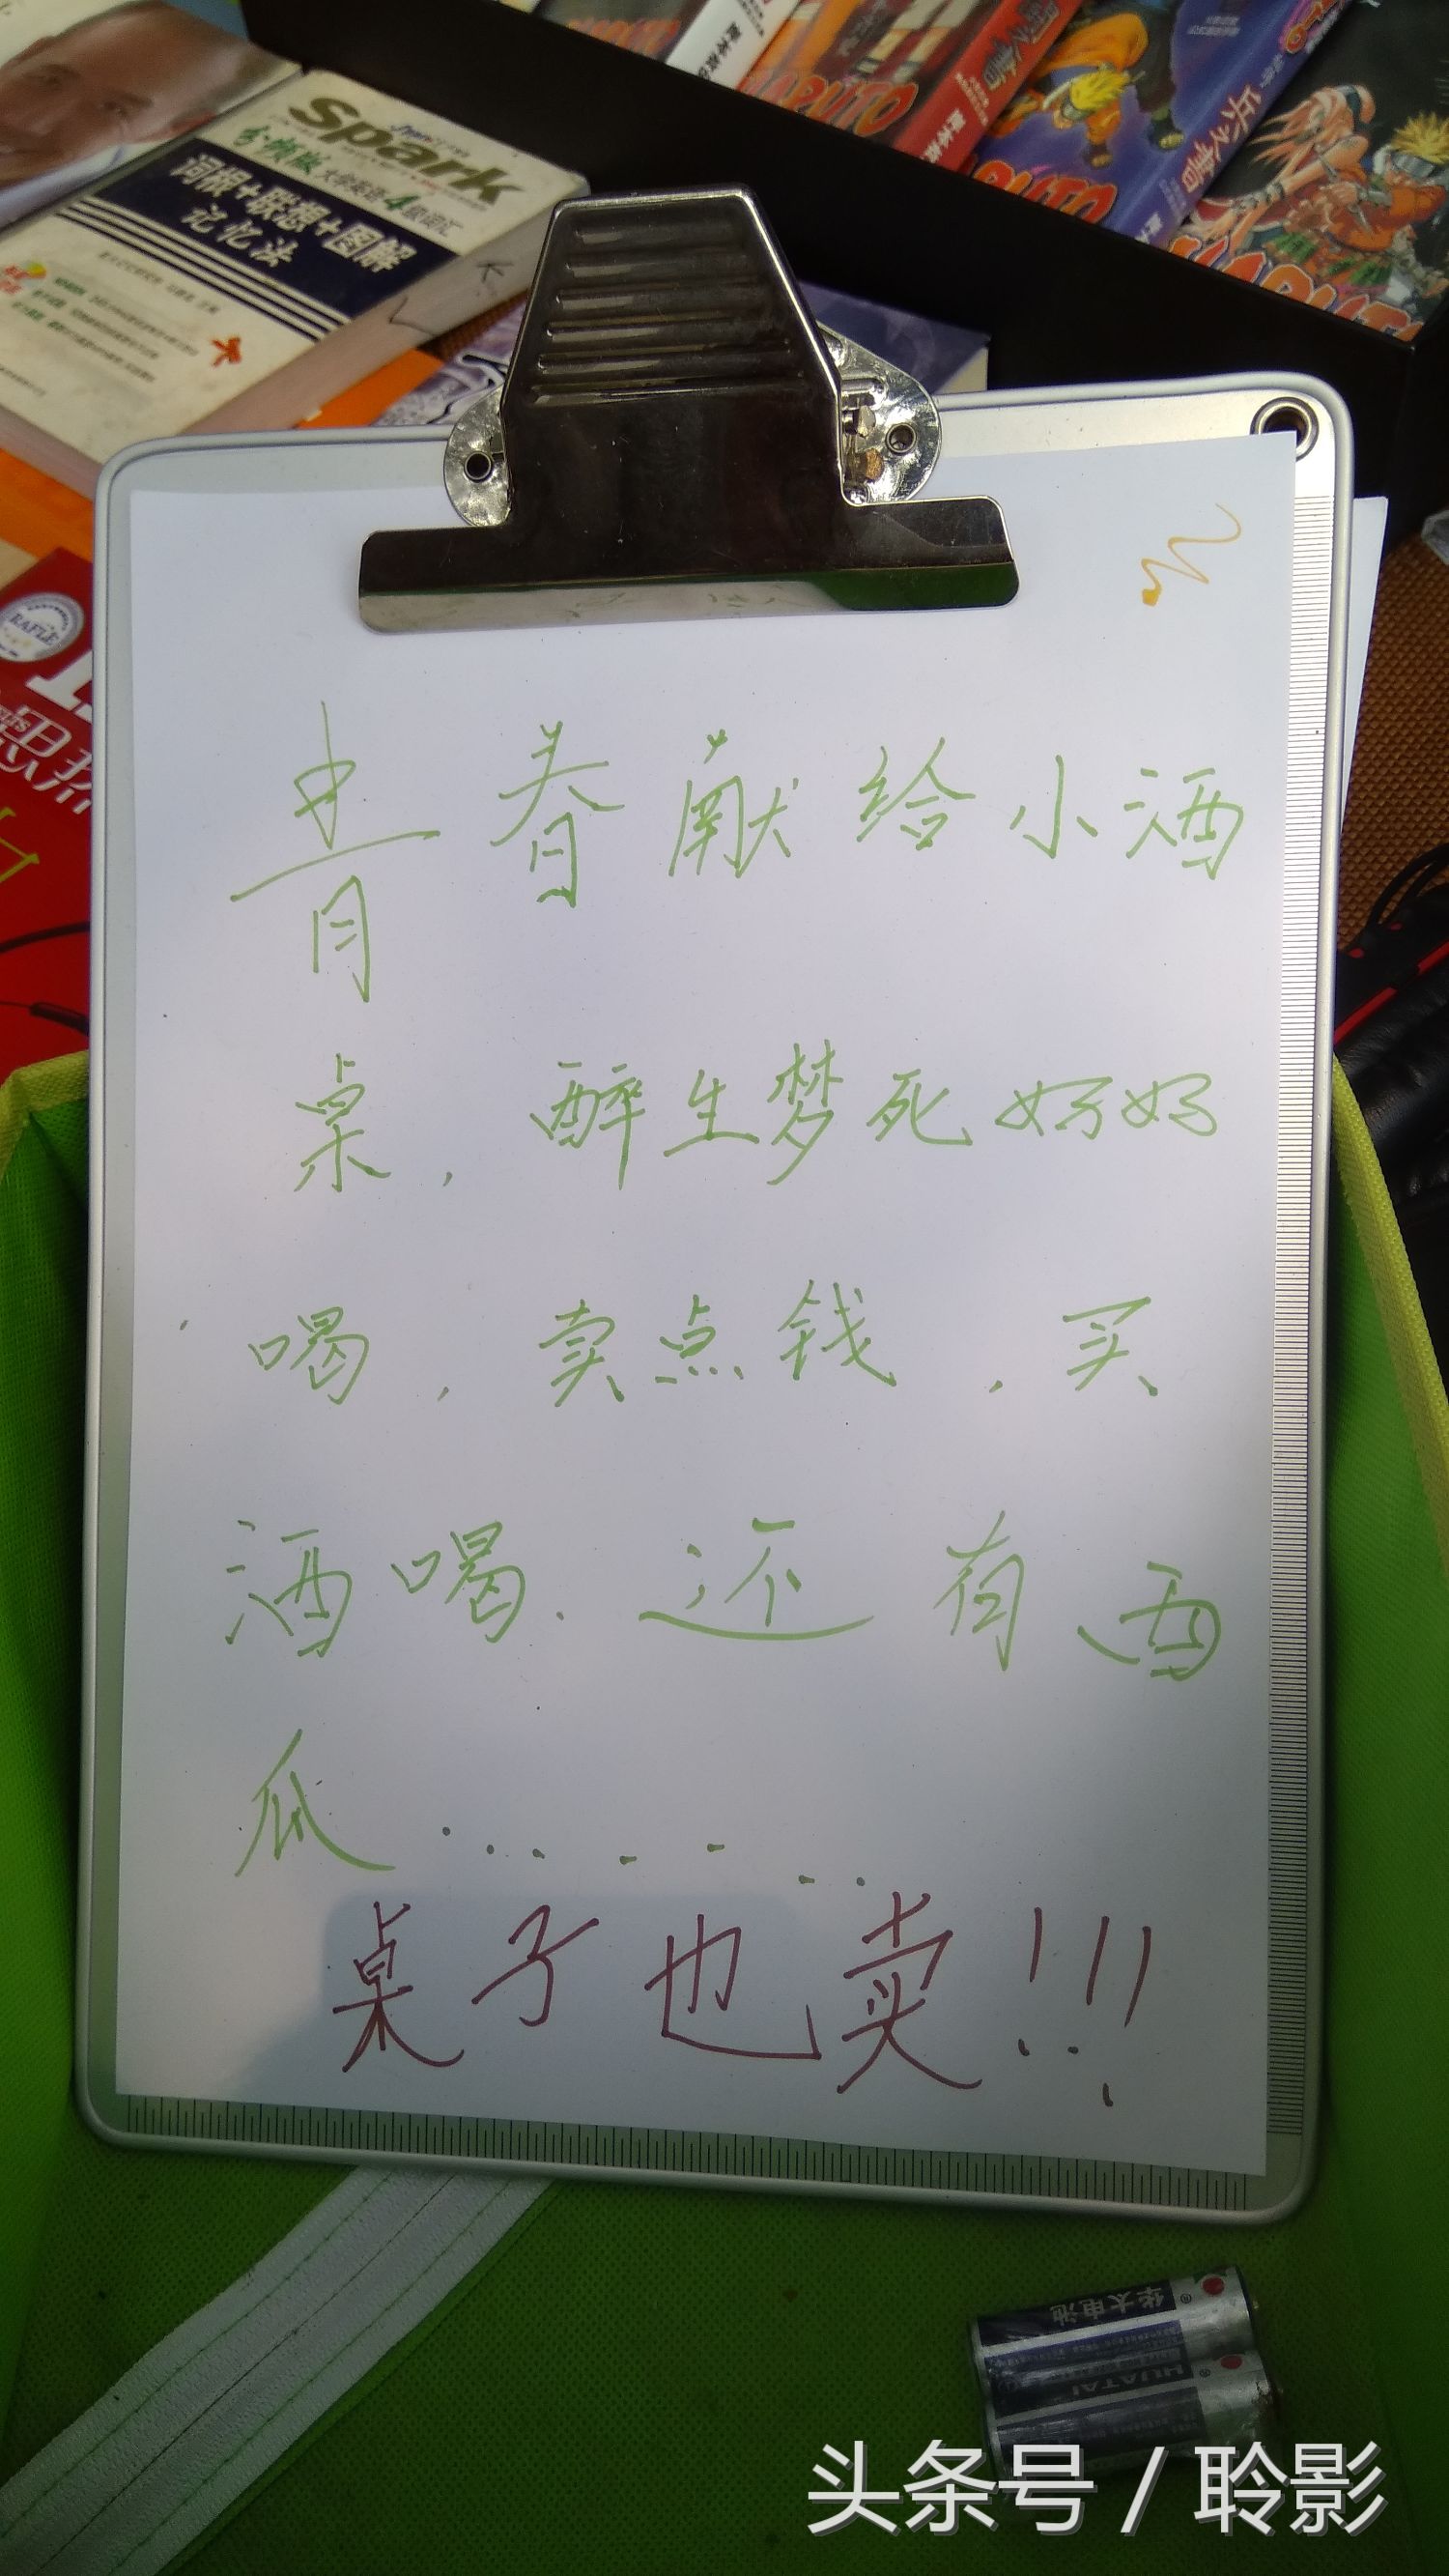 Spark
词根+联想+图解
记忆法
NARUTO
兵之書
青春献给小酒
桌，醉生梦死好好
喝，卖点钱，买
酒喝.还有西
瓜.........
桌子也卖!!!
华太电池
HUATAI
头条号 / 聆影